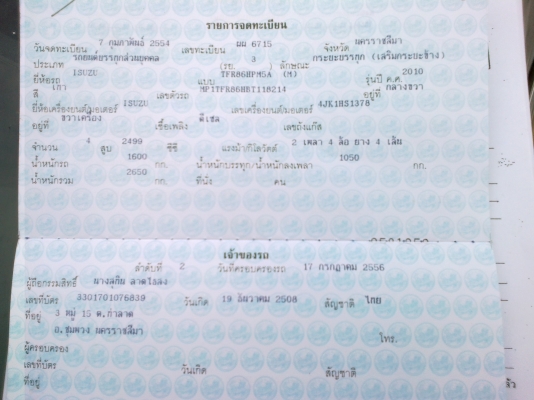 รายการจดทะเบียน
วันจดทะเบียน 7 กุมภาพันธ์ 2554 เลขทะเบียน ผผ 6715 จังหวัด นครราชสีมา
ประเภท รถยนต์บรรทุกส่วนบุคคล (รย. 3 ) ลักษณะ กระบะบรรทุก (เสริมกระบะข้าง)
ยี่ห้อรถ ISUZU แบบ TFR86HPM5A (M) รุ่นปี ค.ศ. 2010
สี เทา เลขตัวรถ MP1TFR86HBT118214 อยู่ที่ กลางขวา
ยี่ห้อเครื่องยนต์/มอเตอร์ ISUZU เลขเครื่องยนต์/มอเตอร์ 4JK1HS1378
อยู่ที่ ขวาเครื่อง เชื้อเพลิง ดีเซล เลขถังแก๊ส
จำนวน 4 สูบ 2499 ซีซี แรงม้า/กิโลวัตต์ 2 เพลา 4 ล้อ ยาง 4 เส้น
น้ำหนักรถ 1600 กก. น้ำหนักบรรทุก/น้ำหนักลงเพลา 1050 กก.
น้ำหนักรวม 2650 กก. ที่นั่ง คน
เจ้าของรถ
ลำดับที่ 2 วันที่ครอบครองรถ 17 กรกฎาคม 2556
ผู้ถือกรรมสิทธิ์
เลขที่บัตร 3301701076839 วันเกิด 19 ธันวาคม 2508 สัญชาติ ไทย
ที่อยู่ 3 หมู่ 15 ต.ท่าลาด
อ.ชุมพวง นครราชสีมา โทร.
ผู้ครอบครอง
เลขที่บัตร วันเกิด สัญชาติ
ที่อยู่